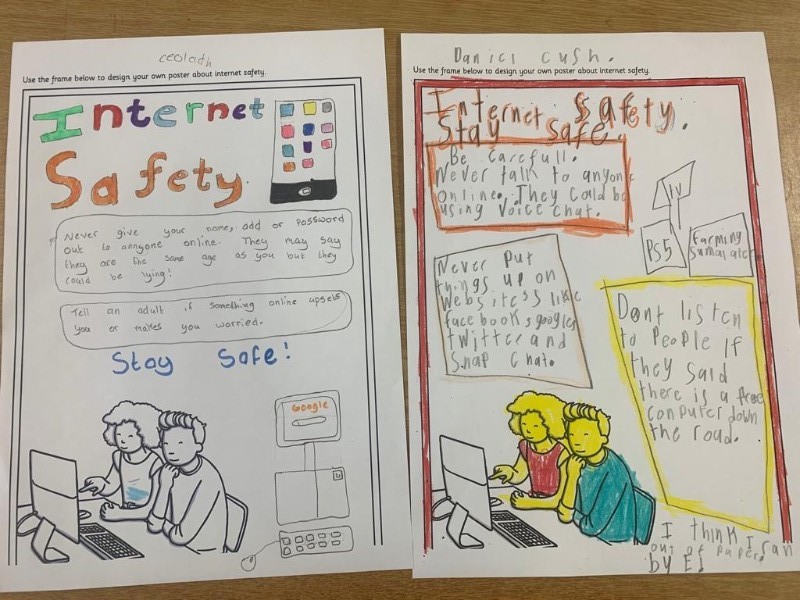 ceoladh
Use the frame below to design your own poster about internet safety.
Internet
Safety
Never give your name, add or password
out to annyone online. They may say
they are the same age as you but they
could be lying!
Tell an adult if something online upsets
you or makes you worried.
Stay Safe!
Google
Daniel cush.
Use the frame below to design your own poster about internet safety.
Internet Safety.
Stay safe.
Be carefull.
Never talk to anyone
online. They could be
using voice chat.
TV
PS5
farming
Never put
things up on
Websitess like
facebook, google,
twitter and
Snap chat.
Dont listen
to people if
they said
there is a free
computer down
the road.
I think I ran
out of paper
by